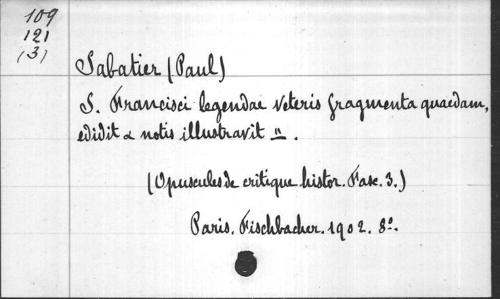 109
121
(3)
Sabatier (Paul)
S. Francisci legendae veteris fragmenta quaedam,
edidit & notis illustravit ".
(Opuscules de critique histor. Fasc. 3.)
Paris. Fischbacher. 1902. 8º.